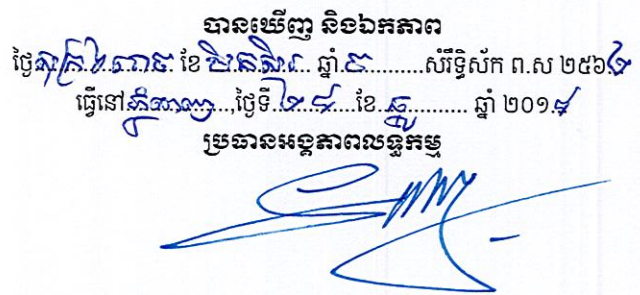 បានឃើញ និងឯកភាព
ថ្ងៃសុក្រ ៦រោច ខែ មិគសិរ ឆ្នាំ ច សំរឹទ្ធិស័ក ព.ស ២៥៦២
ធ្វើនៅភ្នំពេញ,ថ្ងៃទី ២៨ ខែ ធ្នូ ឆ្នាំ ២០១៨
ប្រធានអង្គភាពលទ្ធកម្ម